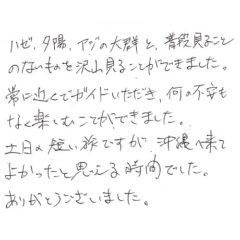 ハゼ、夕陽、アジの大群と、普段見ること
のないものを沢山見ることができました。
常に近くでガイドいただき、何の不安も
なく楽しむことができました。
土日の短い旅ですが、沖縄へ来て
よかったと思える時間でした。
ありがとうございました。